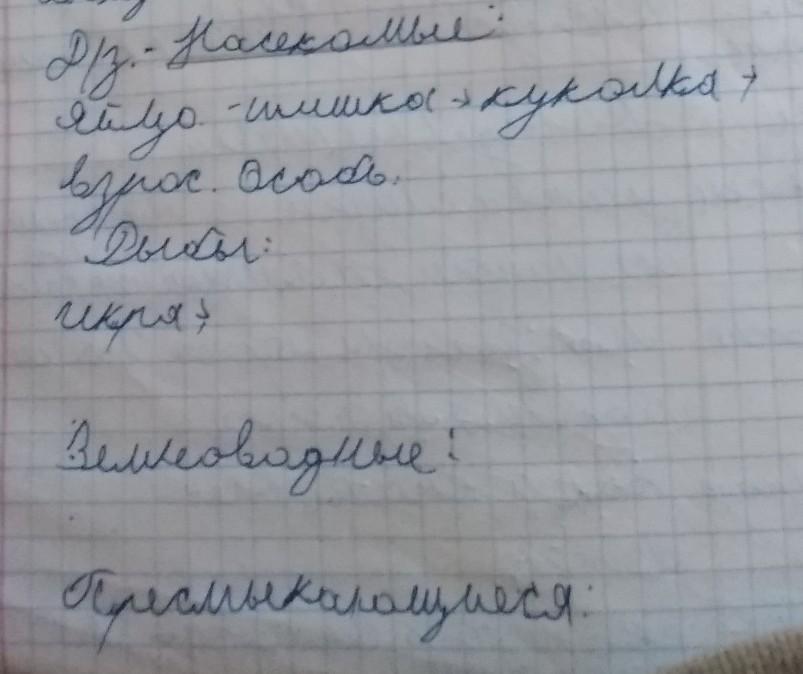 Д/з.- Насекомые:
яйцо -шишка → куколка →
взрос. особь.
Рыбы:
икра →
Земноводные:
Пресмыкающиеся: